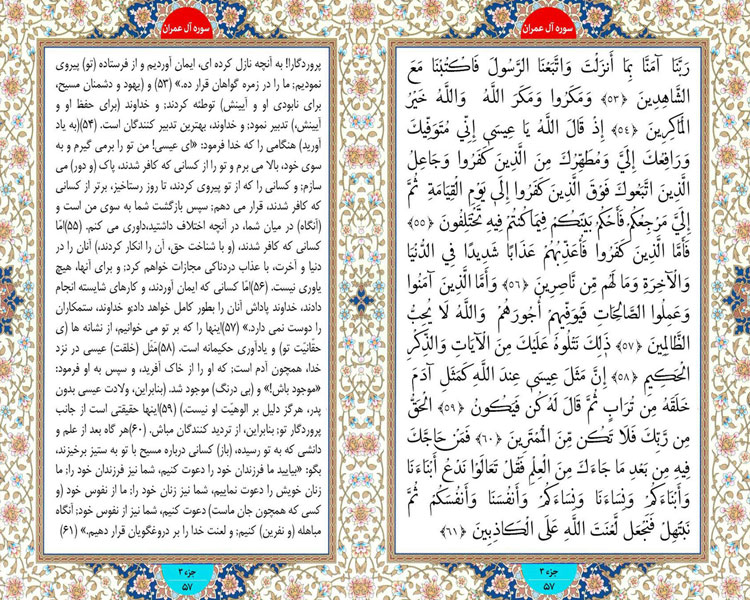 سوره آل عمران
رَبَّنَا آمَنَّا بِمَا أَنزَلْتَ وَاتَّبَعْنَا الرَّسُولَ فَاكْتُبْنَا مَعَ
الشَّاهِدِينَ ﴿۵۳﴾ وَمَكَرُوا وَمَكَرَ اللَّهُ وَاللَّهُ خَيْرُ
الْمَاكِرِينَ ﴿۵۴﴾ إِذْ قَالَ اللَّهُ يَا عِيسَى إِنِّي مُتَوَفِّيكَ
وَرَافِعُكَ إِلَيَّ وَمُطَهِّرُكَ مِنَ الَّذِينَ كَفَرُوا وَجَاعِلُ
الَّذِينَ اتَّبَعُوكَ فَوْقَ الَّذِينَ كَفَرُوا إِلَى يَوْمِ الْقِيَامَةِ ثُمَّ
إِلَيَّ مَرْجِعُكُمْ فَأَحْكُمُ بَيْنَكُمْ فِيمَا كُنتُمْ فِيهِ تَخْتَلِفُونَ ﴿۵۵﴾
فَأَمَّا الَّذِينَ كَفَرُوا فَأُعَذِّبُهُمْ عَذَابًا شَدِيدًا فِي الدُّنْيَا
وَالْآخِرَةِ وَمَا لَهُم مِّن نَّاصِرِينَ ﴿۵۶﴾ وَأَمَّا الَّذِينَ آمَنُوا
وَعَمِلُوا الصَّالِحَاتِ فَيُوَفِّيهِمْ أُجُورَهُمْ وَاللَّهُ لَا يُحِبُّ
الظَّالِمِينَ ﴿۵۷﴾ ذَٰلِكَ نَتْلُوهُ عَلَيْكَ مِنَ الْآيَاتِ وَالذِّكْرِ
الْحَكِيمِ ﴿۵۸﴾ إِنَّ مَثَلَ عِيسَى عِندَ اللَّهِ كَمَثَلِ آدَمَ
خَلَقَهُ مِن تُرَابٍ ثُمَّ قَالَ لَهُ كُن فَيَكُونُ ﴿۵۹﴾ الْحَقُّ
مِن رَّبِّكَ فَلَا تَكُن مِّنَ الْمُمْتَرِينَ ﴿۶۰﴾ فَمَنْ حَاجَّكَ
فِيهِ مِن بَعْدِ مَا جَاءَكَ مِنَ الْعِلْمِ فَقُلْ تَعَالَوْا نَدْعُ أَبْنَاءَنَا
وَأَبْنَاءَكُمْ وَنِسَاءَنَا وَنِسَاءَكُمْ وَأَنفُسَنَا وَأَنفُسَكُمْ ثُمَّ
نَبْتَهِلْ فَنَجْعَل لَّعْنَتَ اللَّهِ عَلَى الْكَاذِبِينَ ﴿۶۱﴾
جزء ۳
۵۷
سوره آل عمران
پروردگارا! به آنچه نازل کرده ای، ایمان آوردیم و از فرستاده (تو) پیروی
نمودیم؛ ما را در زمره گواهان قرار ده.» (۵۳) و (یهود و دشمنان مسیح،
برای نابودی او و آیینش) توطئه کردند؛ و خداوند (برای حفظ او و
آیینش،) تدبیر نمود؛ و خداوند، بهترین تدبیر کنندگان است. (۵۴)(به یاد
آورید) هنگامی را که خدا فرمود: «ای عیسی! من تو را برمی گیرم و به
سوی خود، بالا می برم و تو را از کسانی که کافر شدند، پاک (و دور) می
سازم؛ و کسانی را که از تو پیروی کردند، تا روز رستاخیز، برتر از کسانی
که کافر شدند، قرار می دهم؛ سپس بازگشت شما به سوی من است و
(آنگاه) در میان شما، در آنچه اختلاف داشتید،داوری می کنم. (۵۵)امّا
کسانی که کافر شدند، (و با شناخت حق، آن را انکار کردند،) آنان را در
دنیا و آخرت، با عذاب دردناکی مجازات خواهم کرد؛ و برای آنها، هیچ
یاوری نیست. (۵۶)امّا کسانی که ایمان آوردند، و کارهای شایسته انجام
دادند، خداوند پاداش آنان را بطور کامل خواهد داد؛و خداوند، ستمکاران
را دوست نمی دارد.» (۵۷)اینها را که بر تو می خوانیم، از نشانه ها (ی
حقّانیّت تو) و یادآوری حکیمانه است. (۵۸)مَثَل (خلقت) عیسی در نزد
خدا، همچون آدم است؛ که او را از خاک آفرید، و سپس به او فرمود:
«موجود باش!» و (بی درنگ) موجود شد. (بنابراین، ولادت عیسی بدون
پدر، هرگز دلیل بر الوهیّت او نیست.) (۵۹)اینها حقیقتی است از جانب
پروردگار تو؛ بنابراین، از تردید کنندگان مباش. (۶۰)هر گاه بعد از علم و
دانشی که به تو رسیده، (باز) کسانی درباره مسیح با تو به ستیز برخیزند،
بگو: «بیایید ما فرزندان خود را دعوت کنیم، شما نیز فرزندان خود را؛ ما
زنان خویش را دعوت نماییم، شما نیز زنان خود را؛ ما از نفوس خود (و
کسی که همچون جان ماست) دعوت کنیم، شما نیز از نفوس خود؛ آنگاه
مباهله (و نفرین) کنیم؛ و لعنت خدا را بر دروغگویان قرار دهیم.» (۶۱)
جزء ۳
۵۷